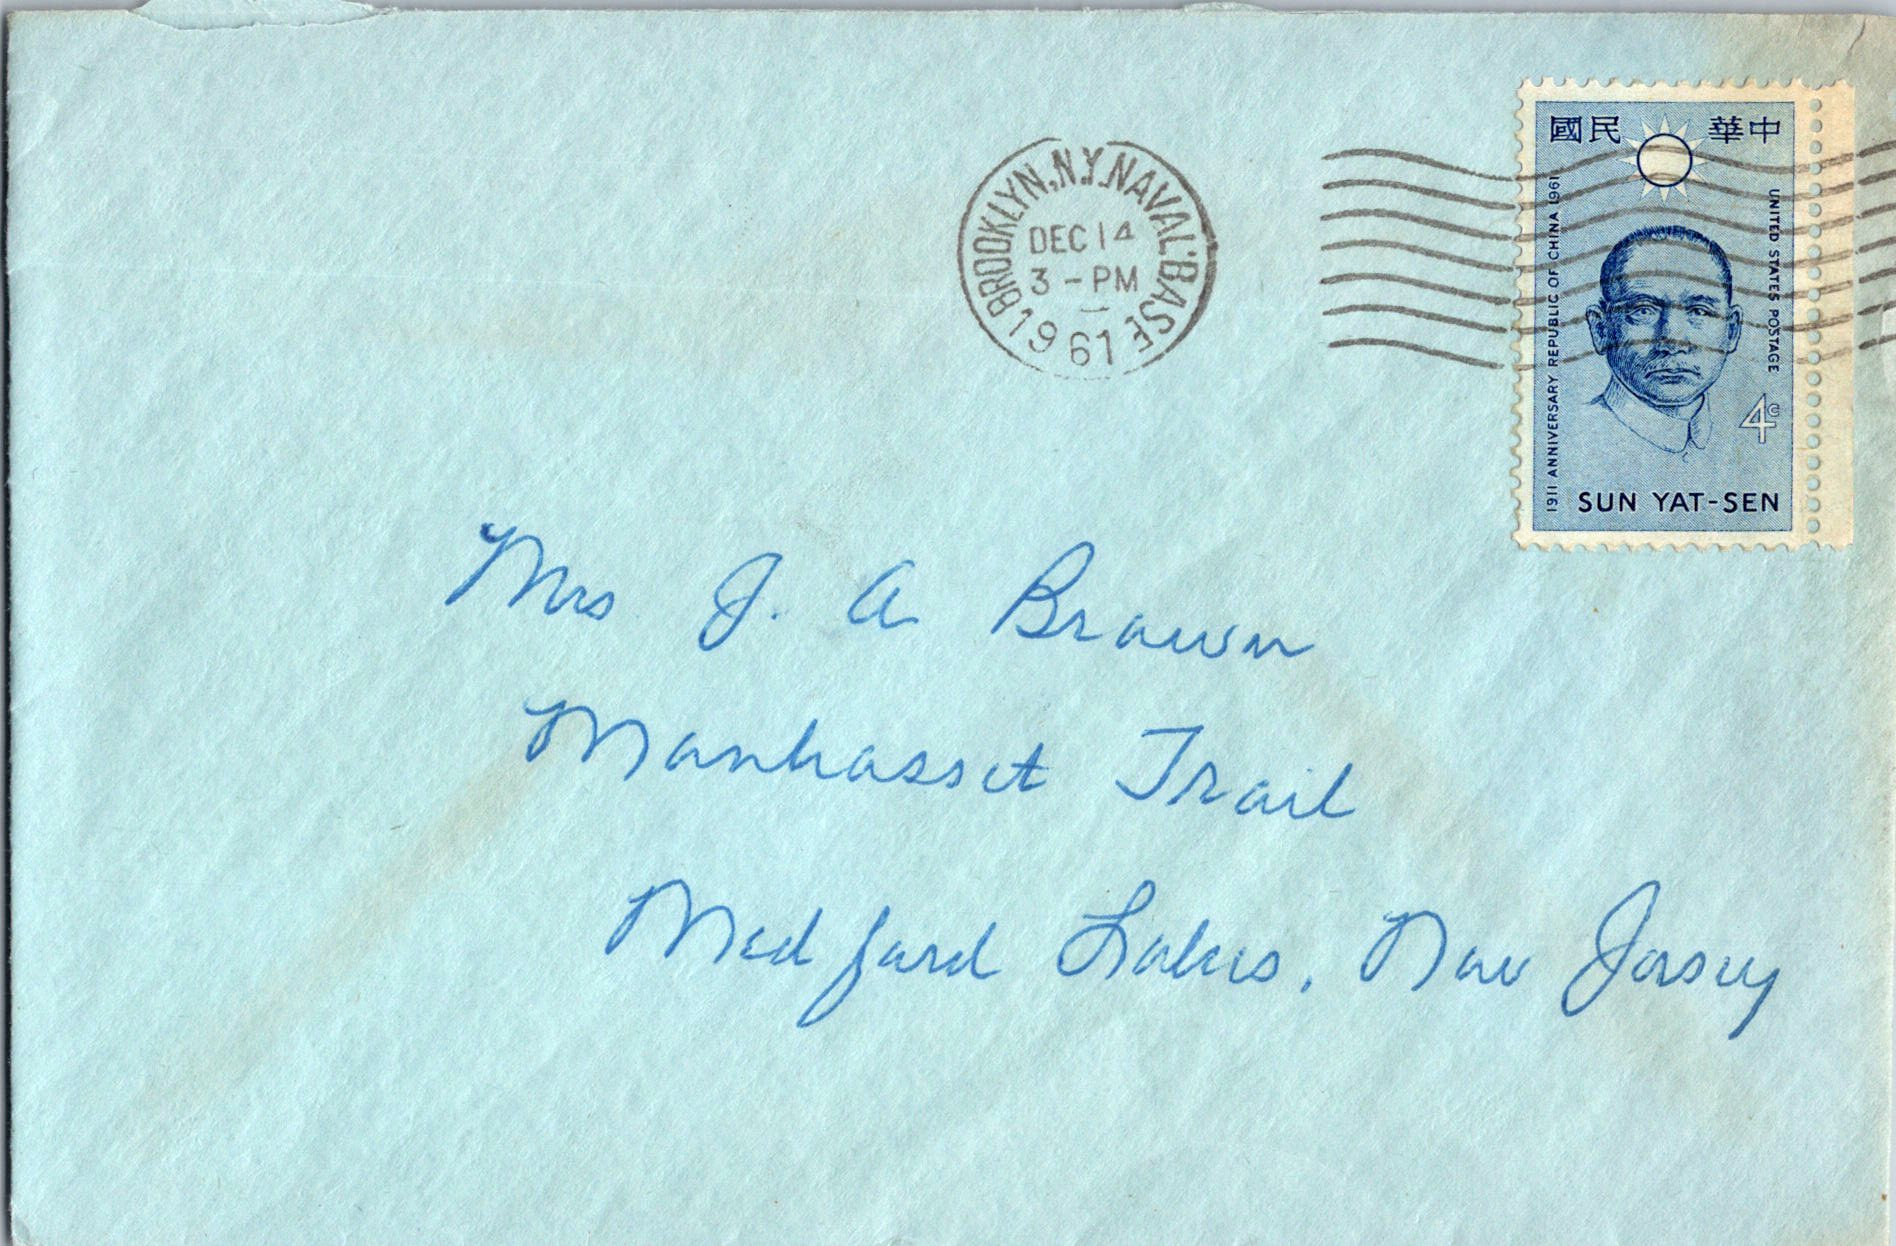 BROOKLYN, N.Y. NAVAL BASE
DEC 14
3 - PM
1961
國民 華中
1911 ANNIVERSARY REPUBLIC OF CHINA 1961
UNITED STATES POSTAGE
4c
SUN YAT-SEN
Mrs J. A Brown
Manhasset Trail
Medford Lakes, New Jersey